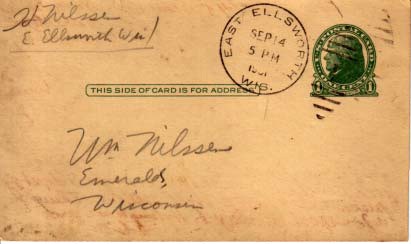 H Nilssen
E. Ellsworth Wis
EAST ELLSWORTH
SEP 14
5 PM
WIS.
THIS SIDE OF CARD IS FOR ADDRESS
1 1
Wm Nilssen
Emerald,
Wisconsin